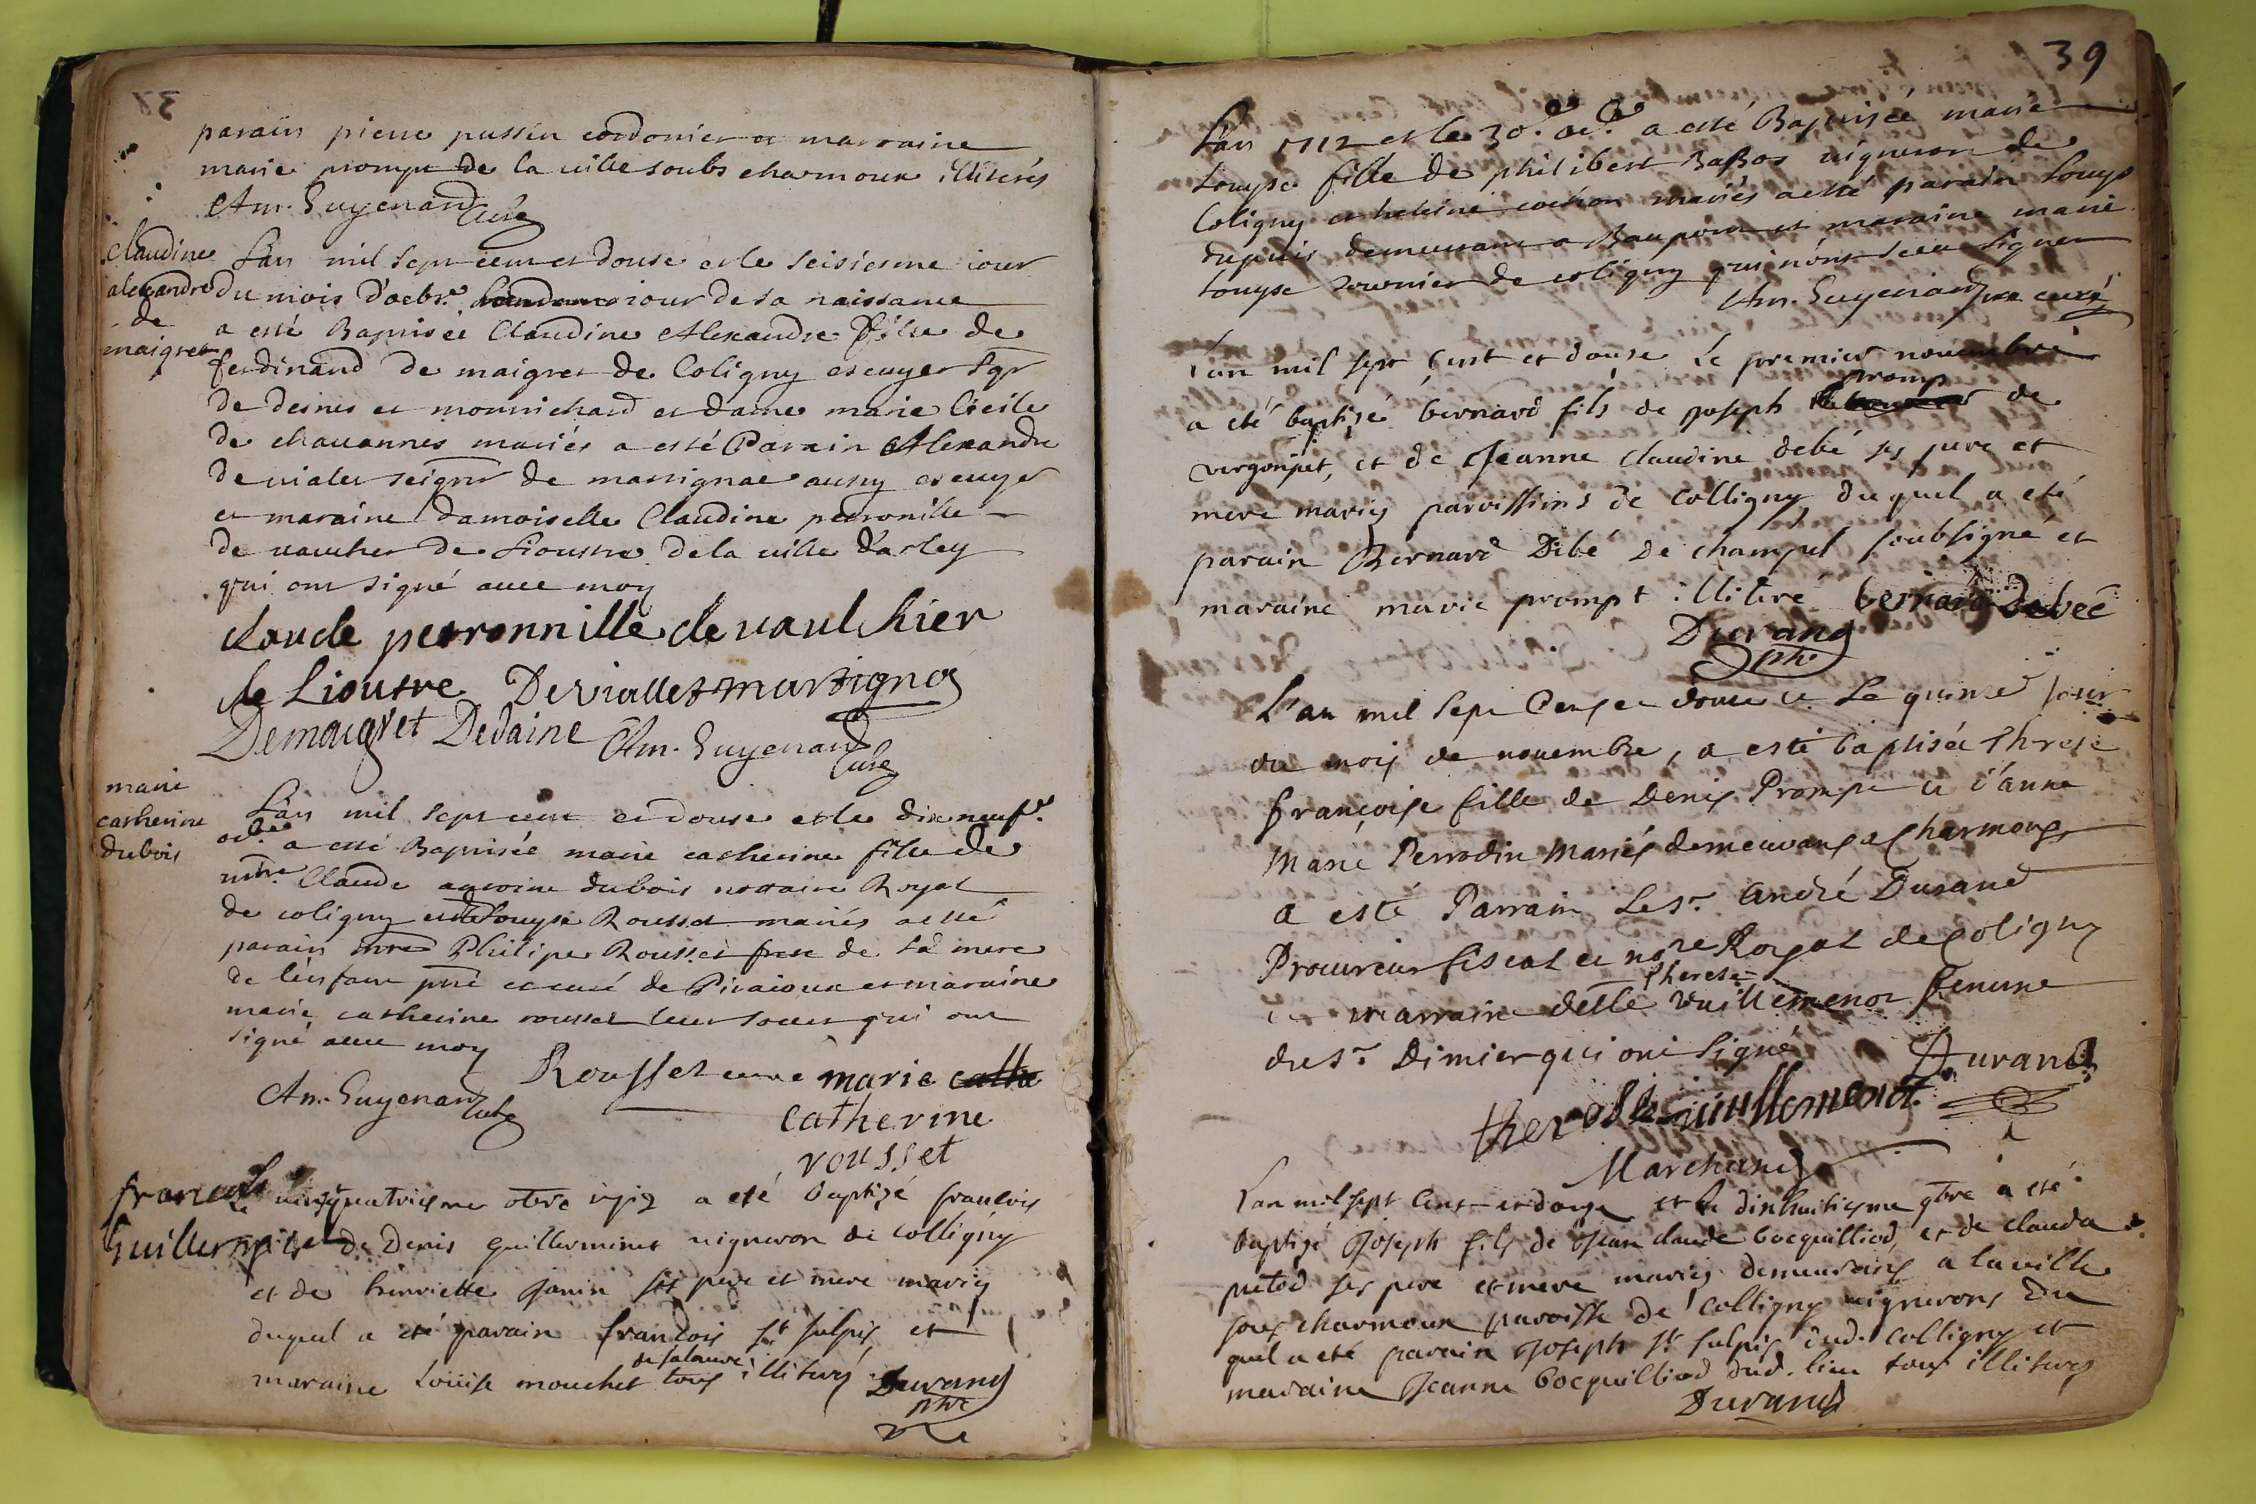 parain pierre pussin cordonier et marraine
marie prompt de la ville soubs charmoux illiterés
Am. Guyenand Curé
Claudine
alexandre
de
maigret
L'an mil sept cent et douse et le seisiesme iour
du mois d'octbre. iour de sa naissance
a esté Baptisée Claudine Alexandre fille de
ferdinand de maigret de Coligny escuyer sgr
de desnes et monnichard et dame marie Cecile
de chauannes mariés a esté Parain Alexandre
de vialet seignr de marsignac aussy escuyer
et maraine damoiselle Claudine petronille
de vaucher de Lioustre de la ville d'arley
qui ont signé auec moy
claude petronnille de uaulchier
de Lioustre Deviallet martignas
Demaigret Dedaine Am. Guyenand Curé
marie
catherine
dubois
L'an mil sept cent et douse et le dix neufe.
octbre a esté Baptisée marie catherine fille de
mtre. Claude antoine dubois nottaire Royal
de coligny et de Louyse Rousset mariés a esté
parain mre Philipe Rousset frere de la mere
de l'enfant ptre et curé de Piraioux et maraine
marie catherine rousset leur soeur qui ont
signé auec moy
Am. Guyenand Curé Rousset curé marie cathe
catherine
rousset
francois
Guillerminet
Le vingtquatriesme obre 1712 a eté baptizé francois
fils de Denis guillerminet uigneron de colligny
et de henriette Janin ses pere et mere mariés
duquel a eté parain francois st sulpis et
maraine Louise mouchet tous illiterés Durand
ptre
39
L'an 1712 et le 30e. octe. a esté Baptisée marie
Louyse fille de philibert BaBos uigneron de
Coligny et heleine cochon mariés a esté parain Louys
dupuis demeurant a Beaupont et maraine marie
Louyse Fournier de coligny qui n'ont sceu signer
Am. Guyenand ptre curé
L'an mil sept cent et douse le premier nouembre
promp
a eté baptizé bernard fils de Joseph de
vergonjat, et de Jeanne claudine debé ses pere et
mere mariés paroissiens de Colligny duquel a eté
parain Bernard Dibé de champel soubsigné et
maraine marie prompt illiteré bernard debeé
Durand
ptre
L'an mil sept Cens et douze et Le quinze Jour
du mois de nouembre, a esté baptisée Threse
françoise fille de Denis Prompt et d'anne
Marie Perrodin Mariés demeurans a Charmoux
a esté Parrain Le sr. André Durand
Procureur fiscal et nore Royal de Coligny
Therese
et marraine delle Vuillemenot femme
du sr. Dimier qui ont Signé
Durand
therese vuillemenot
Marchand
L'an mil sept Cent et douze et le dixhuitiesme 9bre a eté
baptizé Joseph fils de Jean claude bocquilliod et de clauda
petod ses pere et mere mariés demeurans a la ville
sous charmoux paroisse de Colligny uignerons du
quel a eté parain Joseph st sulpis dud. Colligny et
maraine Jeanne bocquilliod dud. lieu tous illiterés
Durand